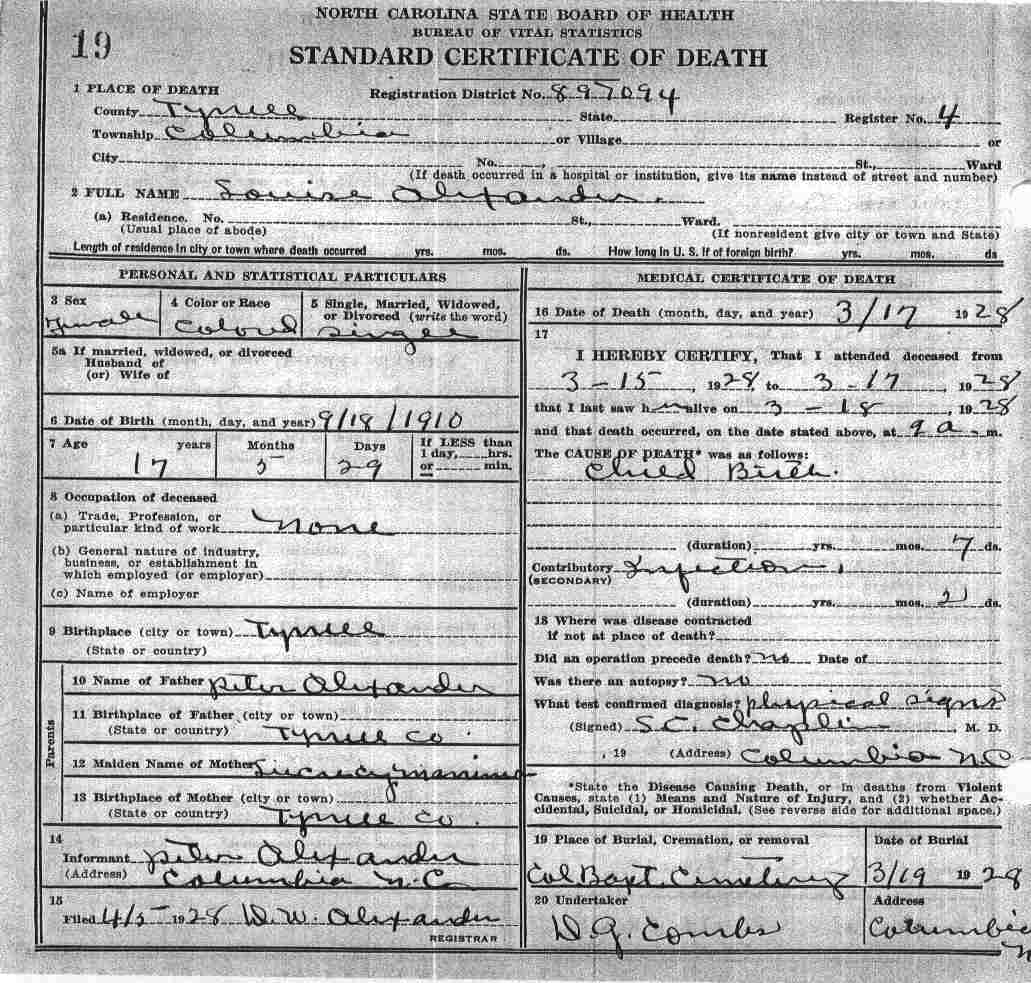 NORTH CAROLINA STATE BOARD OF HEALTH
BUREAU OF VITAL STATISTICS
19
STANDARD CERTIFICATE OF DEATH
1 PLACE OF DEATH
Registration District No. 897094
County Tyrrell State Register No. 4
Township Columbia or Village or
City No. St., Ward
(If death occurred in a hospital or institution, give its name instead of street and number)
2 FULL NAME Louise Alexander.
(a) Residence. No. St., Ward.
(Usual place of abode) (If nonresident give city or town and State)
Length of residence in city or town where death occurred yrs. mos. ds. How long in U. S. if of foreign birth? yrs. mos. ds
PERSONAL AND STATISTICAL PARTICULARS
3 Sex
Female
4 Color or Race
Colored
5 Single, Married, Widowed,
or Divorced (write the word)
Single
5a If married, widowed, or divorced
Husband of
(or) Wife of
6 Date of Birth (month, day, and year) 9/18/1910
7 Age years Months Days If LESS than
1 day, hrs.
or min.
17 5 29
8 Occupation of deceased
(a) Trade, Profession, or
particular kind of work None
(b) General nature of industry,
business, or establishment in
which employed (or employer)
(c) Name of employer
9 Birthplace (city or town) Tyrrell
(State or country)
Parents
10 Name of Father Peter Alexander
11 Birthplace of Father (city or town)
(State or country) Tyrrell Co.
12 Maiden Name of Mother
13 Birthplace of Mother (city or town)
(State or country) Tyrrell Co.
14
Informant Peter Alexander
(Address) Columbia N.C.
15
Filed 4/5 1928 D. W. Alexander
REGISTRAR
MEDICAL CERTIFICATE OF DEATH
16 Date of Death (month, day, and year) 3/17 1928
17
I HEREBY CERTIFY, That I attended deceased from
3-15, 1928, to 3-17, 1928
that I last saw h alive on 3-18, 1928
and that death occurred, on the date stated above, at 9 a. m.
The CAUSE OF DEATH* was as follows:
Child Birth.
(duration) yrs. mos. 7 ds.
Contributory Infection,
(SECONDARY)
(duration) yrs. mos. 2 ds.
18 Where was disease contracted
if not at place of death?
Did an operation precede death? no Date of
Was there an autopsy? no
What test confirmed diagnosis? physical signs
(Signed) S.C. Chaplin, M. D.
, 19 (Address) Columbia N.C
*State the Disease Causing Death, or in deaths from Violent
Causes, state (1) Means and Nature of Injury, and (2) whether Ac-
cidental, Suicidal, or Homicidal. (See reverse side for additional space.)
19 Place of Burial, Cremation, or removal
Col Bapt. Cemetery
Date of Burial
3/19 1928
20 Undertaker
D. G. Combs
Address
Columbia
N